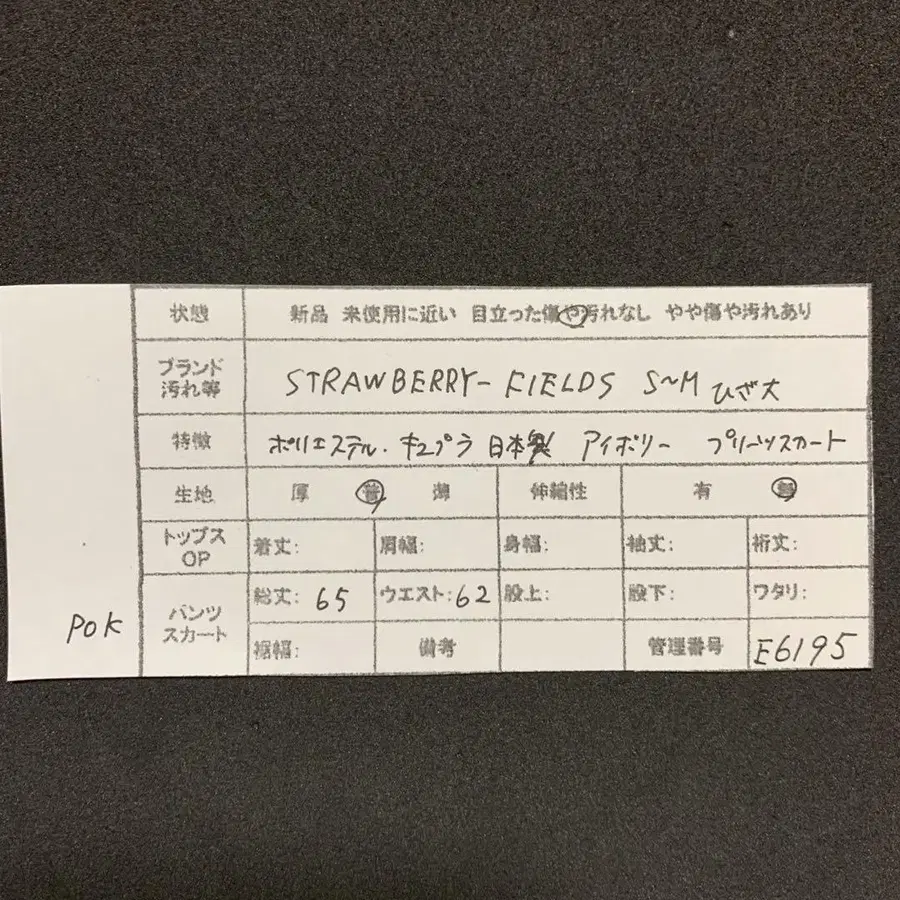 状態 新品 未使用に近い 目立った傷や汚れなし やや傷や汚れあり
ブランド
汚れ等
STRAWBERRY-FIELDS S~M ひざ大
特徴 ポリエステル・キュプラ 日本製 アイボリー プリーツスカート
生地 厚 普 薄 伸縮性 有 無
トップス
OP
着丈: 肩幅: 身幅: 袖丈: 裄丈:
パンツ
スカート
総丈: 65 ウエスト: 62 股上: 股下: ワタリ:
裾幅: 備考 管理番号 E6195
POK